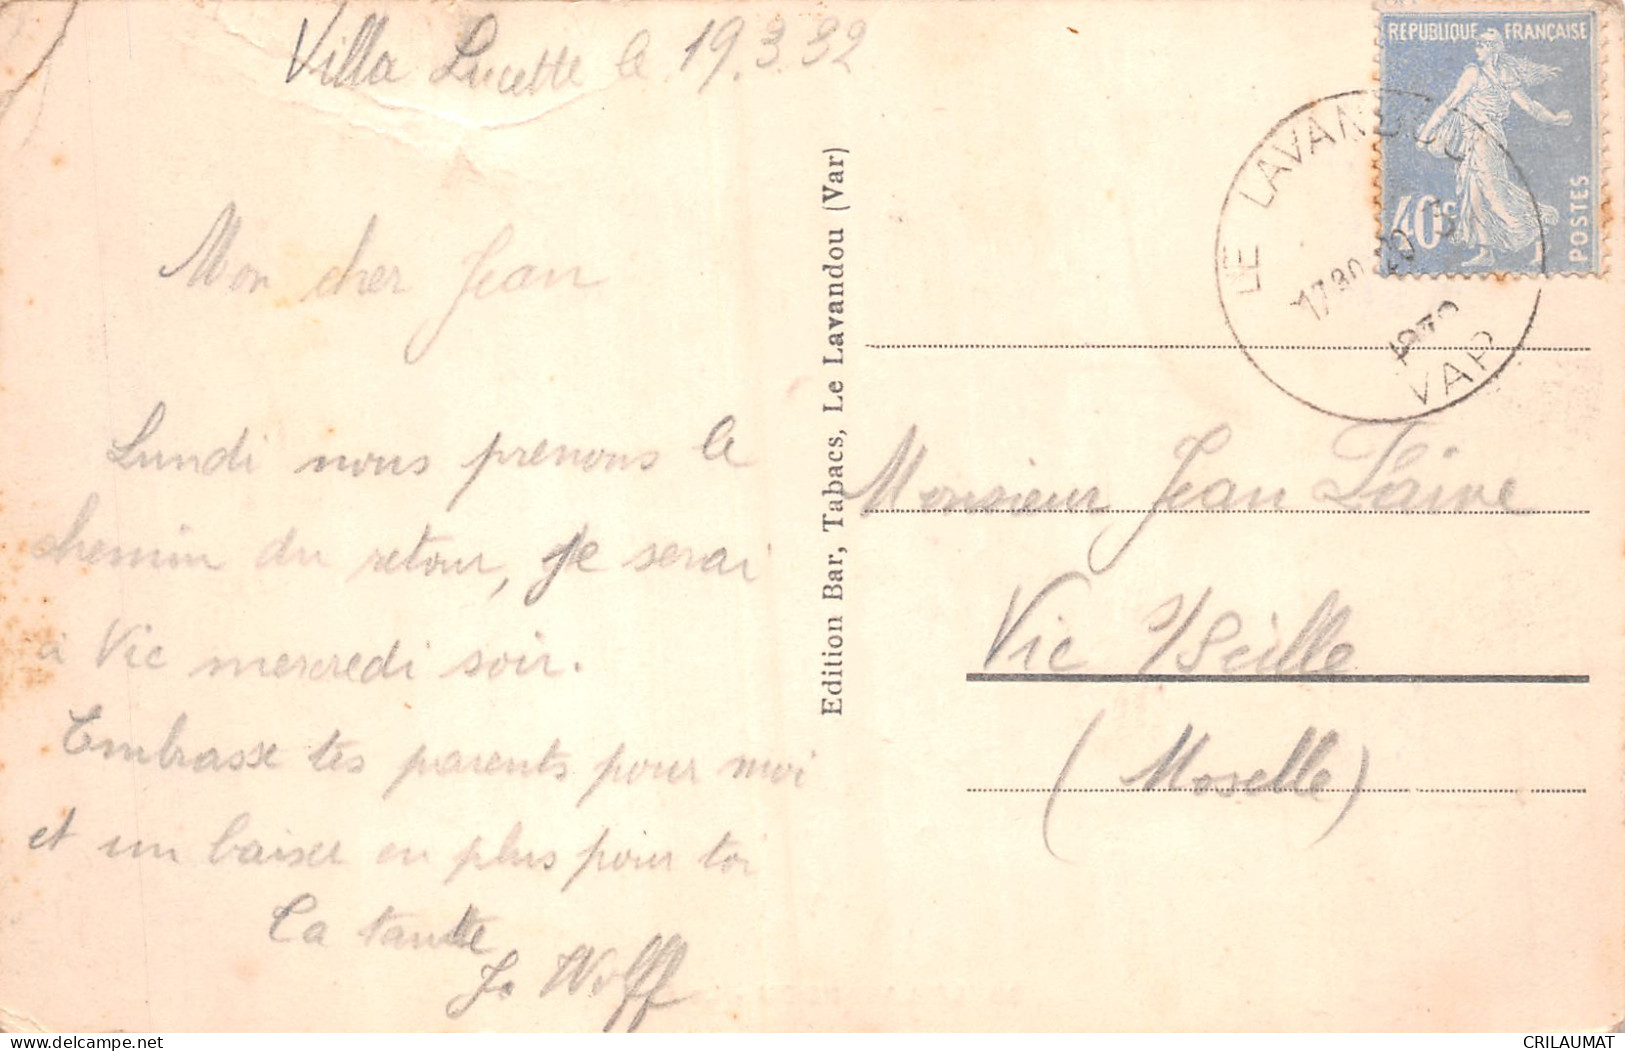 Villa Lucette le 19.3.32
Mon cher Jean
Lundi nous prenons le
chemin du retour, je serai
à Vic mercredi soir.
Embrasse tes parents pour moi
et un baiser en plus pour toi
Ta tante
J. Wolff
Edition Bar, Tabacs, Le Lavandou (Var)
RÉPUBLIQUE FRANÇAISE
40c
POSTES
LE LAVANDOU
1730 20 3
1932
VAR
Monsieur Jean Laive
Vic s/Seille
(Moselle)
CRILAUMAT